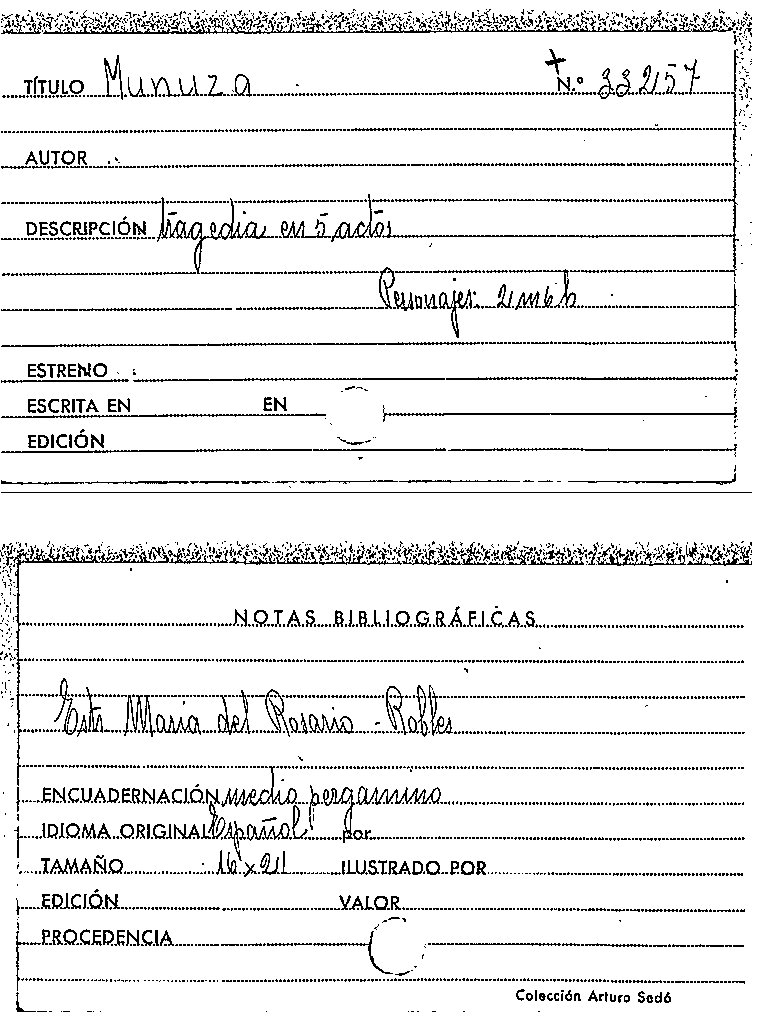 TÍTULO Munuza N.º 33257
AUTOR
DESCRIPCIÓN tragedia en 5 actos
Personajes: 2 m 6 h
ESTRENO
ESCRITA EN EN
EDICIÓN
NOTAS BIBLIOGRÁFICAS
María del Rosario - Robles
ENCUADERNACIÓN medio pergamino
IDIOMA ORIGINAL Español por
TAMAÑO 16 x 21 ILUSTRADO POR
EDICIÓN VALOR
PROCEDENCIA
Colección Arturo Sedó